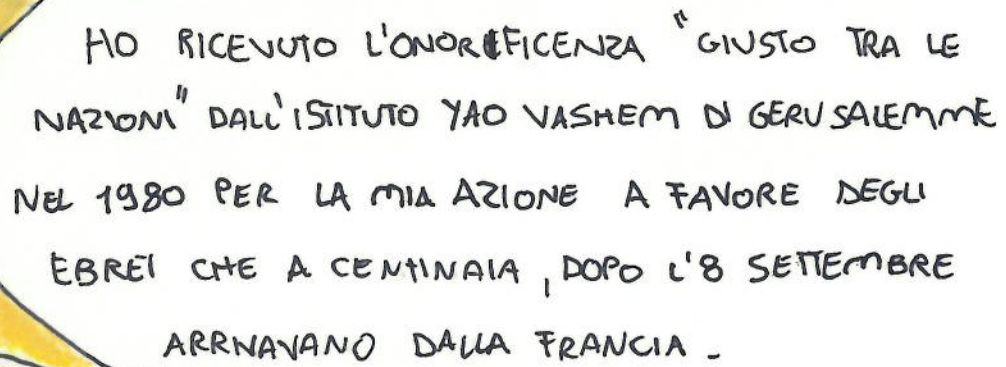 HO RICEVUTO L'ONOREFICENZA "GIUSTO TRA LE
NAZIONI" DALL'ISTITUTO YAD VASHEM DI GERUSALEMME
NEL 1980 PER LA MIA AZIONE A FAVORE DEGLI
EBREI CHE A CENTINAIA, DOPO L'8 SETTEMBRE
ARRIVAVANO DALLA FRANCIA -